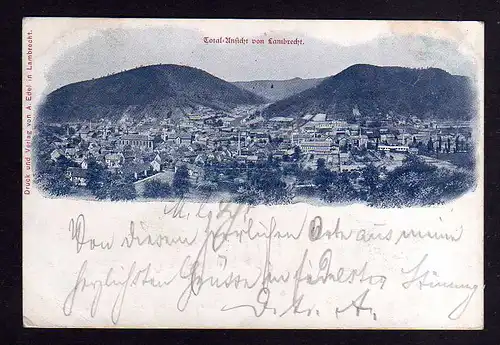 Total-Ansicht von Lambrecht.
Druck und Verlag von A. Edel in Lambrecht.
Von diesem herrlichen Orte aus meine
herzlichsten Grüsse in fidelster Stimmung